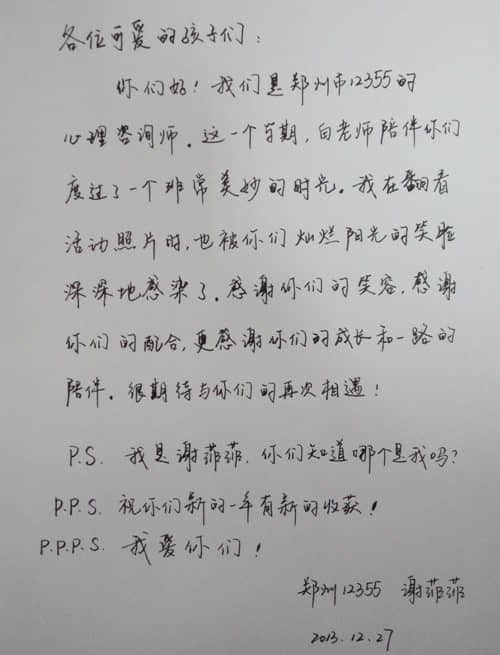 各位可爱的孩子们：
你们好！我们是郑州市12355的
心理咨询师。这一个学期，白老师陪伴你们
度过了一个非常美妙的时光。我在翻看
活动照片时，也被你们灿烂阳光的笑脸
深深地感染了。感谢你们的笑容，感谢
你们的配合，更感谢你们的成长和一路的
陪伴。很期待与你们的再次相遇！
P.S. 我是谢菲菲，你们知道哪个是我吗？
P.P.S. 祝你们新的一年有新的收获！
P.P.P.S. 我爱你们！
郑州12355 谢菲菲
2013.12.27